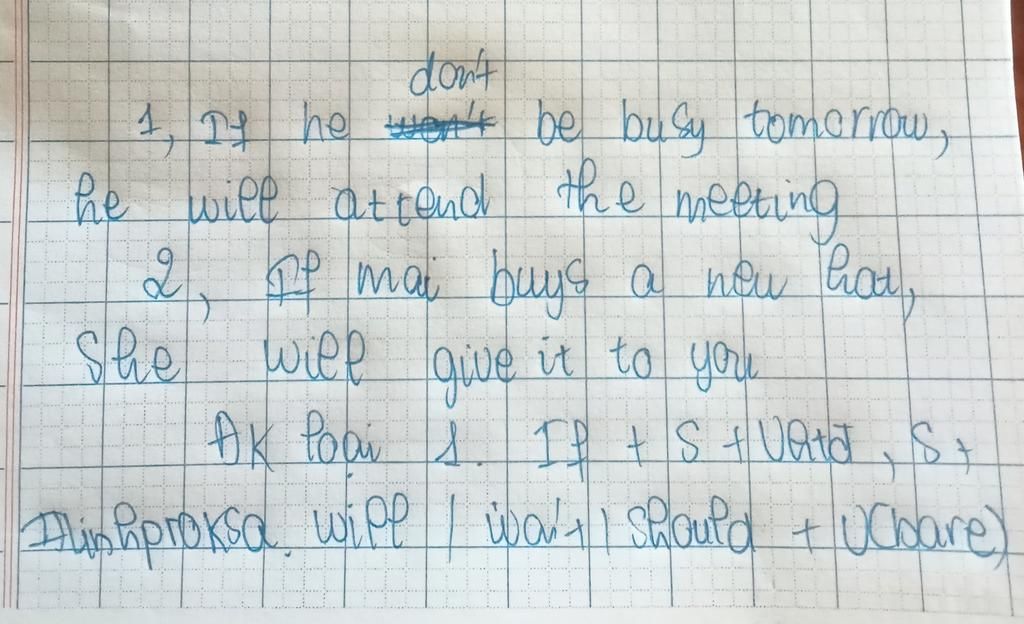 don't
1, If he won't be busy tomorrow,
he will attend the meeting
2, If mai buys a new hat,
She will give it to you
ĐK loại 1. If + S + V(htđ), S +
will / won't / should + V(bare)